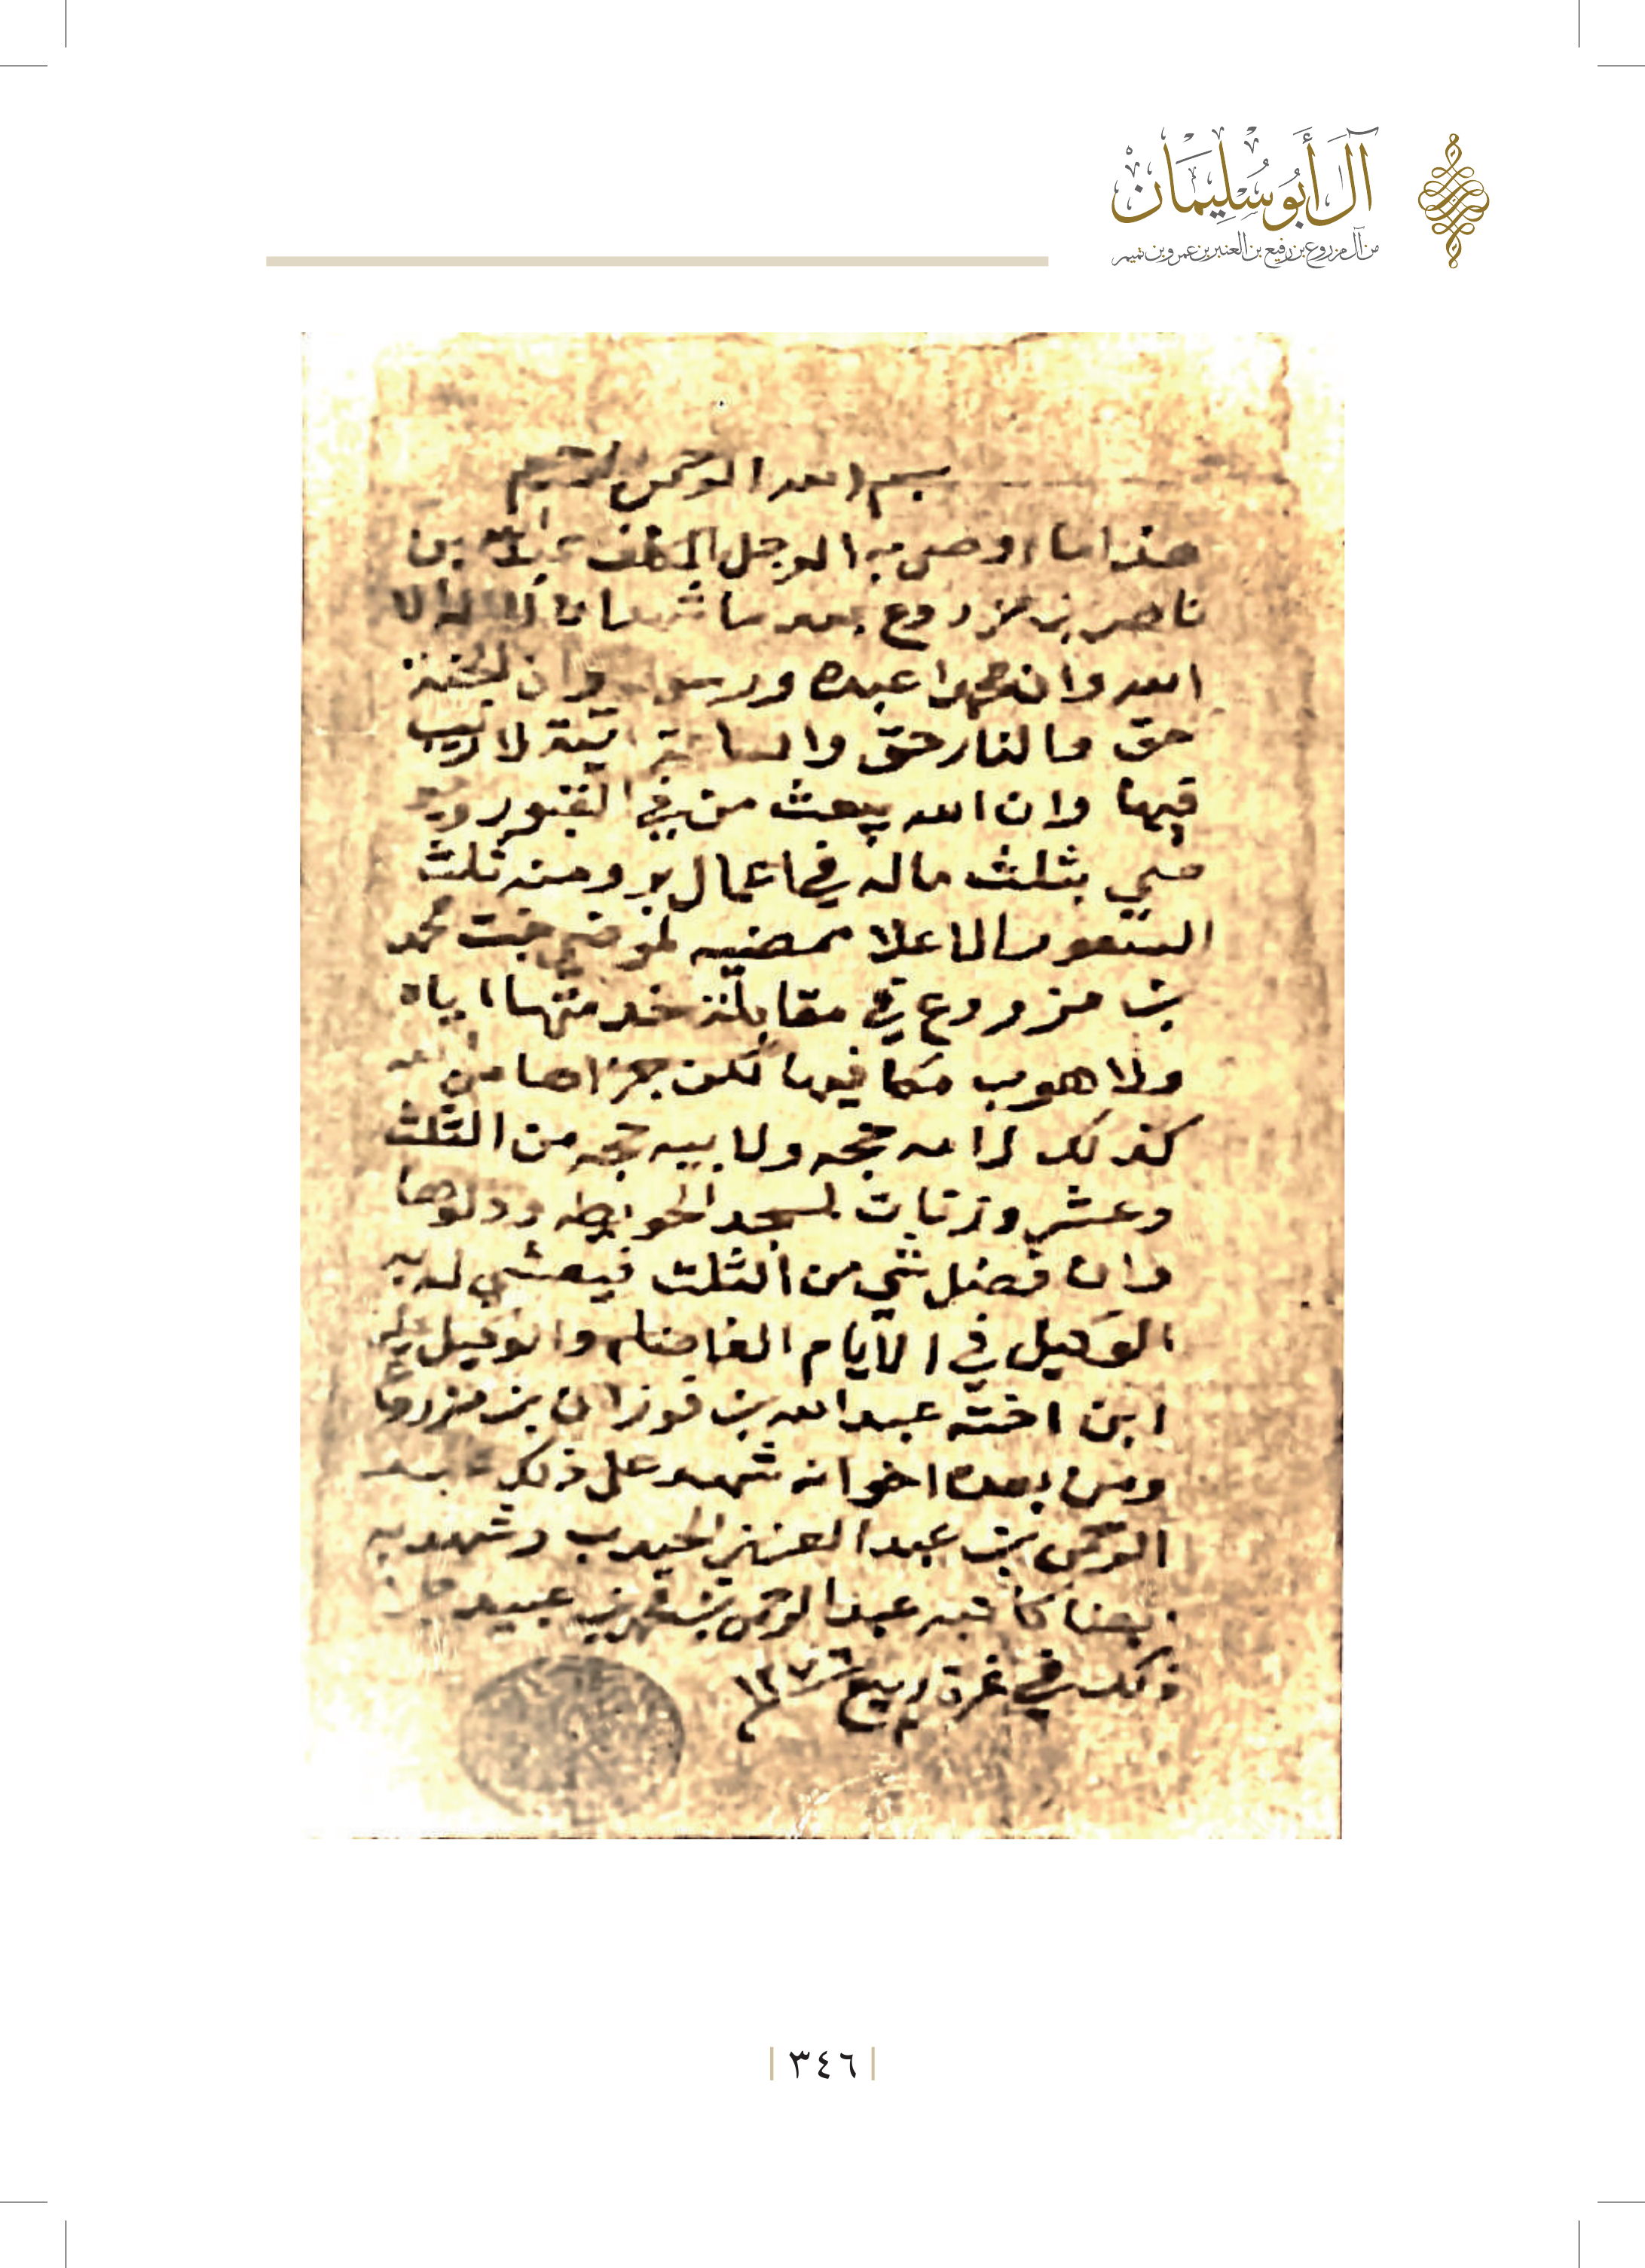 آل أبو سليمان
من آل مزروع بن رفيع بن العنبر بن عمرو بن تميم
بسم الله الرحمن الرحيم
هذا ما اوصى به الرجل المكلف عبدالله بن
ناصر بن مزروع بعد ما شهد ان لا اله الا
الله وان محمدا عبده ورسوله وان الجنة
حق والنار حق والساعة اتية لا ريب
فيها وان الله يبعث من في القبور
بثلث ماله في اعمال بر ومنه ثلث
الاعلا ممضيه لموضي بنت محمد
بن مزروع في مقابلة خدمتها اياه
ولا هوب مكافيها لكن جزاها من الله
كذلك لامه حجه ولابيه حجه من الثلث
وعشر وزنات لمسجد الحويطه ودلوها
وان فضل شي من الثلث فيعشي له به
الوكيل في الايام الفاضله والوكيل على
ابن اخته عبدالله بن فوزان بن مزروع
ومن بعده اخوانه شهد على ذلك عبد
الرحمن بن عبد العزيز الحيدب وشهد به
كاتبه عبد الرحمن بن محمد بن عبيد
ذلك في غرة ربيع ١٣٧٦
٣٤٦